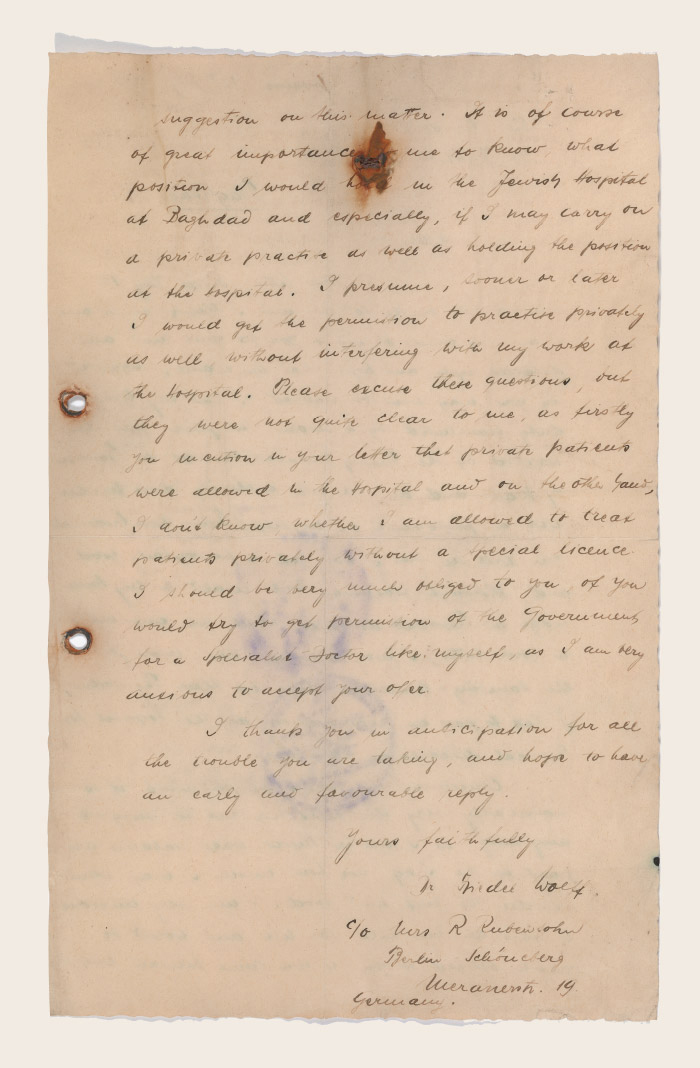 suggestion on this matter. It is of course
of great importance me to know what
position I would hold in the Jewish Hospital
at Baghdad and especially, if I may carry on
a private practise as well as holding the position
at the Hospital. I presume, sooner or later
I would get the permission to practise privately
as well without interfering with my work at
the Hospital. Please excuse these questions, but
they were not quite clear to me, as firstly
you mention in your letter that private patients
were allowed in the Hospital and on the other hand,
I don't know whether I am allowed to treat
patients privately without a special licence.
I should be very much obliged to you, if you
would try to get permission of the Government,
for a Specialist Doctor like myself, as I am very
anxious to accept your offer.
I thank you in anticipation for all
the trouble you are taking, and hope to have
an early and favourable reply.
Yours faithfully
Dr Wolff.
c/o Mrs R Rubensohn
Berlin Schöneberg
Meranerstr. 19
Germany.